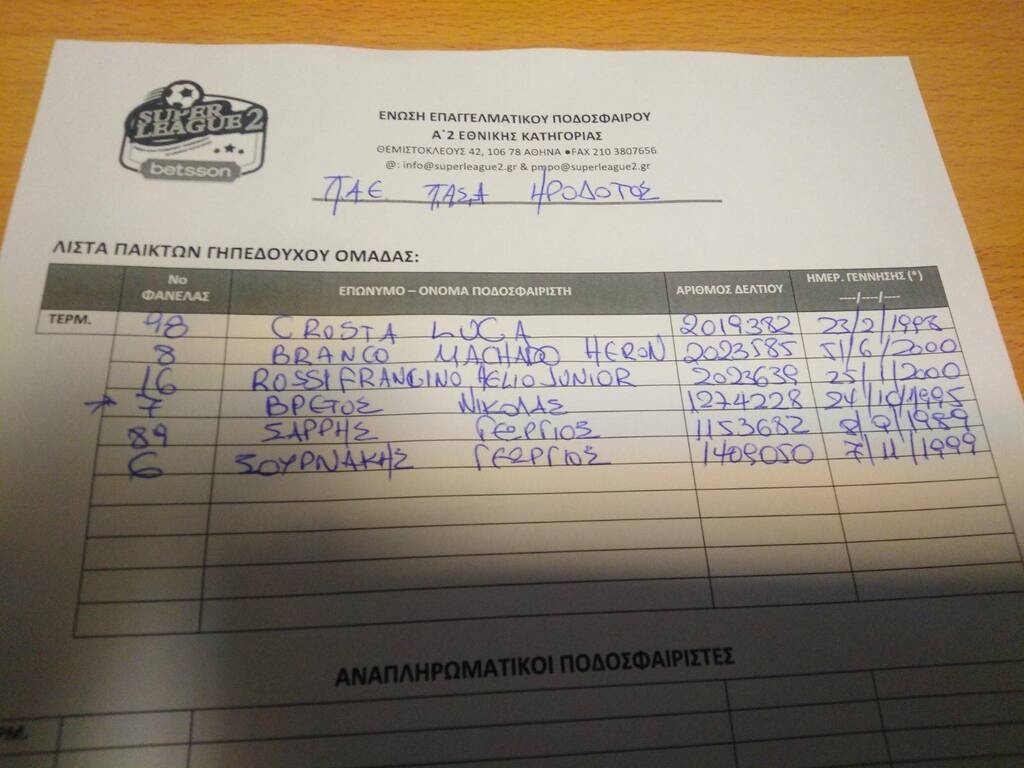 SUPER LEAGUE 2
betsson
ΕΝΩΣΗ ΕΠΑΓΓΕΛΜΑΤΙΚΟΥ ΠΟΔΟΣΦΑΙΡΟΥ
Α΄2 ΕΘΝΙΚΗΣ ΚΑΤΗΓΟΡΙΑΣ
ΘΕΜΙΣΤΟΚΛΕΟΥΣ 42, 106 78 ΑΘΗΝΑ ●FAX 210 3807656
@: info@superleague2.gr & pmpo@superleague2.gr
ΠΑΕ ΠΑΣΑ ΗΡΟΔΟΤΟΣ
ΛΙΣΤΑ ΠΑΙΚΤΩΝ ΓΗΠΕΔΟΥΧΟΥ ΟΜΑΔΑΣ:
No ΦΑΝΕΛΑΣ ΕΠΩΝΥΜΟ – ΟΝΟΜΑ ΠΟΔΟΣΦΑΙΡΙΣΤΗ ΑΡΙΘΜΟΣ ΔΕΛΤΙΟΥ ΗΜΕΡ. ΓΕΝΝΗΣΗΣ (*) ----/----/----
ΤΕΡΜ. 98 CROSTA LUCA 2019382 23/2/1998
8 BRANCO MACHADO HERON 2023585 51/6/2000
16 ROSSI FRANCINO HELIO JUNIOR 2023639 25/1/2000
7 ΒΡΕΤΟΣ ΝΙΚΟΛΑΣ 1274228 24/10/1995
89 ΣΑΡΡΗΣ ΓΕΩΡΓΙΟΣ 1153682 8/9/1989
6 ΣΟΥΡΝΑΚΗΣ ΓΕΩΡΓΙΟΣ 1409050 7/11/1999
ΑΝΑΠΛΗΡΩΜΑΤΙΚΟΙ ΠΟΔΟΣΦΑΙΡΙΣΤΕΣ
ΡΜ.